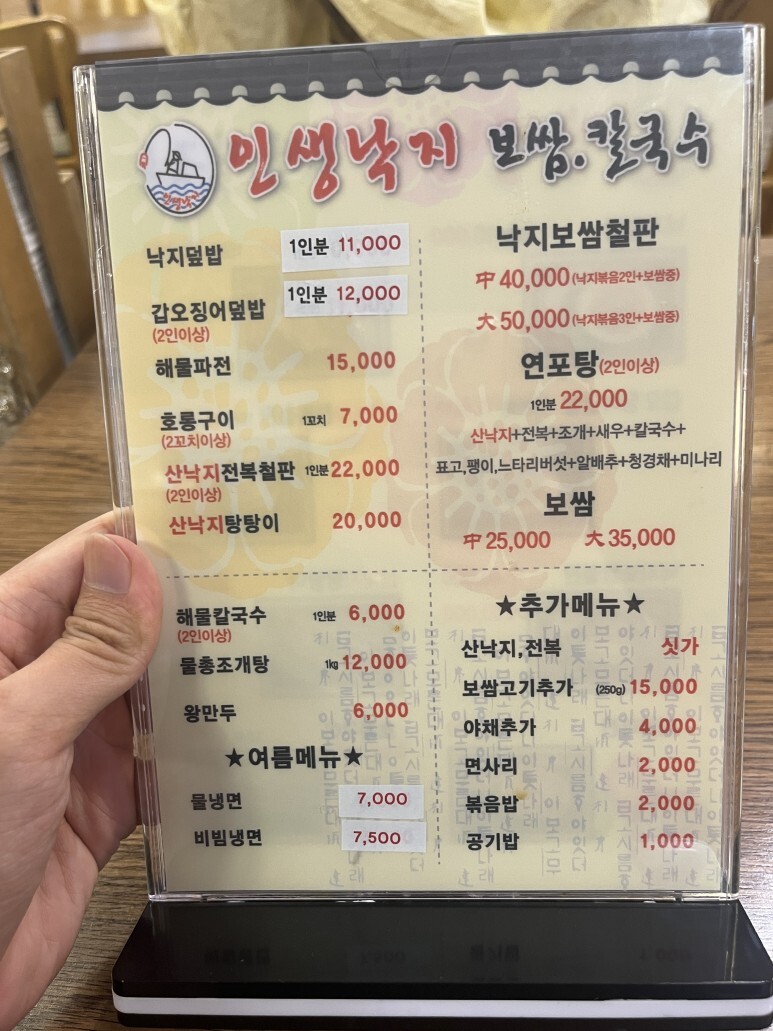 인생낙지 보쌈.칼국수
인생낙지
낙지덮밥 1인분 11,000
갑오징어덮밥 1인분 12,000
(2인이상)
해물파전 15,000
호롱구이 1꼬치 7,000
(2꼬치이상)
산낙지전복철판 1인분 22,000
(2인이상)
산낙지탕탕이 20,000
낙지보쌈철판
中 40,000 (낙지볶음2인+보쌈중)
大 50,000 (낙지볶음3인+보쌈중)
연포탕(2인이상)
1인분 22,000
산낙지+전복+조개+새우+칼국수+
표고,팽이,느타리버섯+알배추+청경채+미나리
보쌈
中 25,000 大 35,000
해물칼국수 1인분 6,000
(2인이상)
물총조개탕 1kg 12,000
왕만두 6,000
★여름메뉴★
물냉면 7,000
비빔냉면 7,500
★추가메뉴★
산낙지,전복 싯가
보쌈고기추가 (250g) 15,000
야채추가 4,000
면사리 2,000
볶음밥 2,000
공기밥 1,000